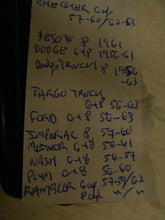 CHECKER 6cyl
57-60/62-63
DESOTO 8 1961
DODGE 6+8 1956-61
Dodge TRUCK 8 1956
-63
FARGO TRUCK
6+8 56-63
FORD 6+8 56-63
IMPERIAL 8 57-60
METEOR 6+8 56-61
NASH 6+8 56-57
PLYM 6+8 56-60
RAMBLER 6cyl 57-59/62
8cyl "/"